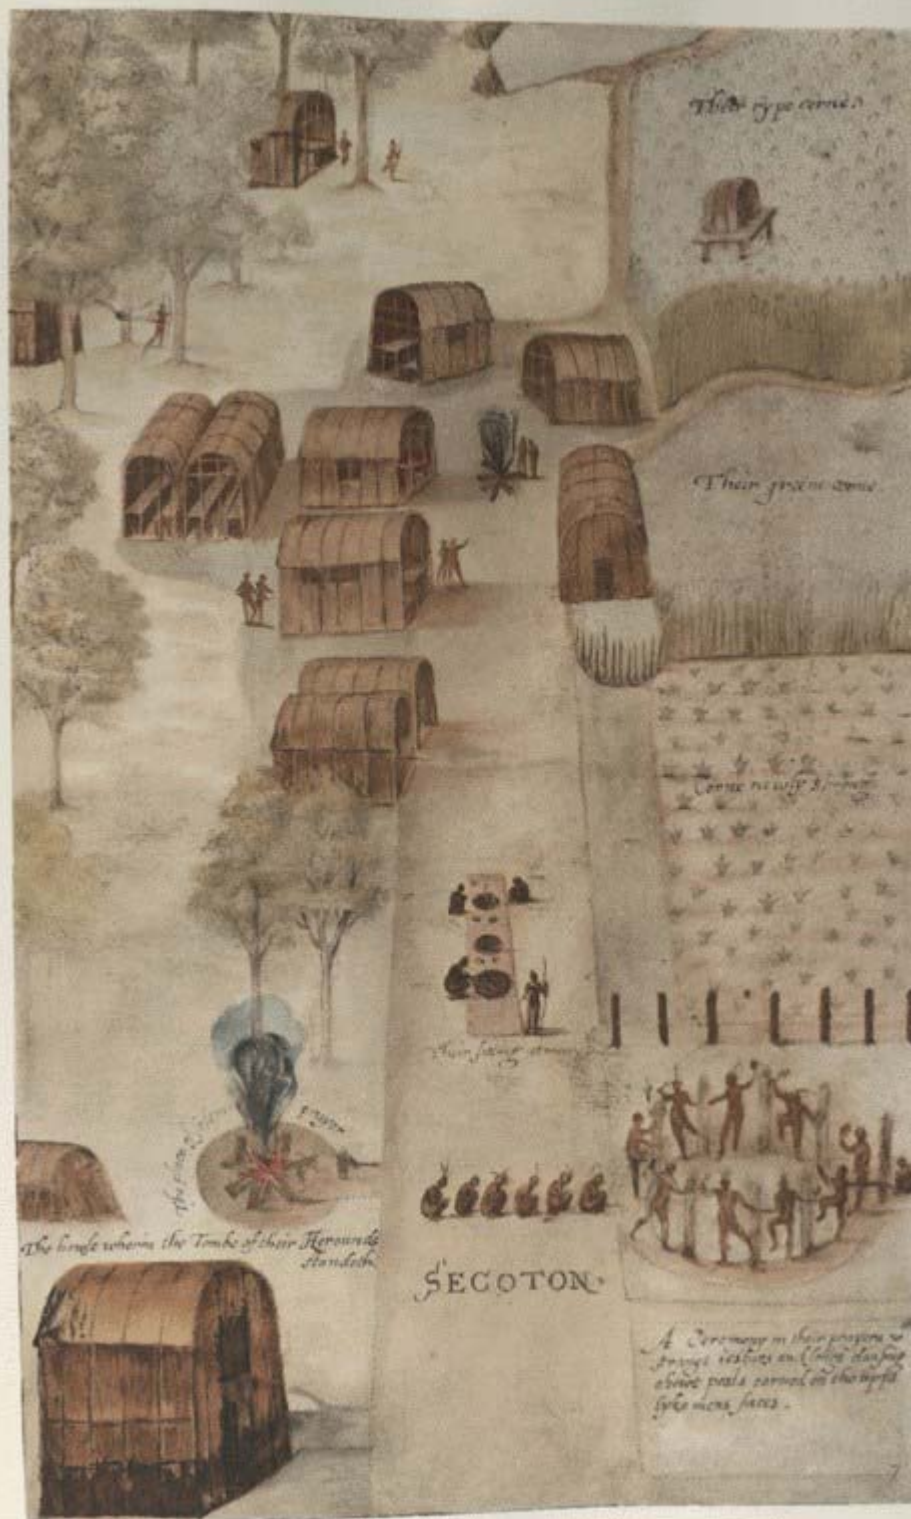 Their rype corne.
Their greene corne.
Corne newly sprong
Their sitting at meate
The place of solemne prayer
The house wherin the Tombe of their Herounds
standeth.
SECOTON.
A Ceremony in their prayers wth
strange iesturs and songs dansing
abowt posts carved on the topps
lyke mens faces.